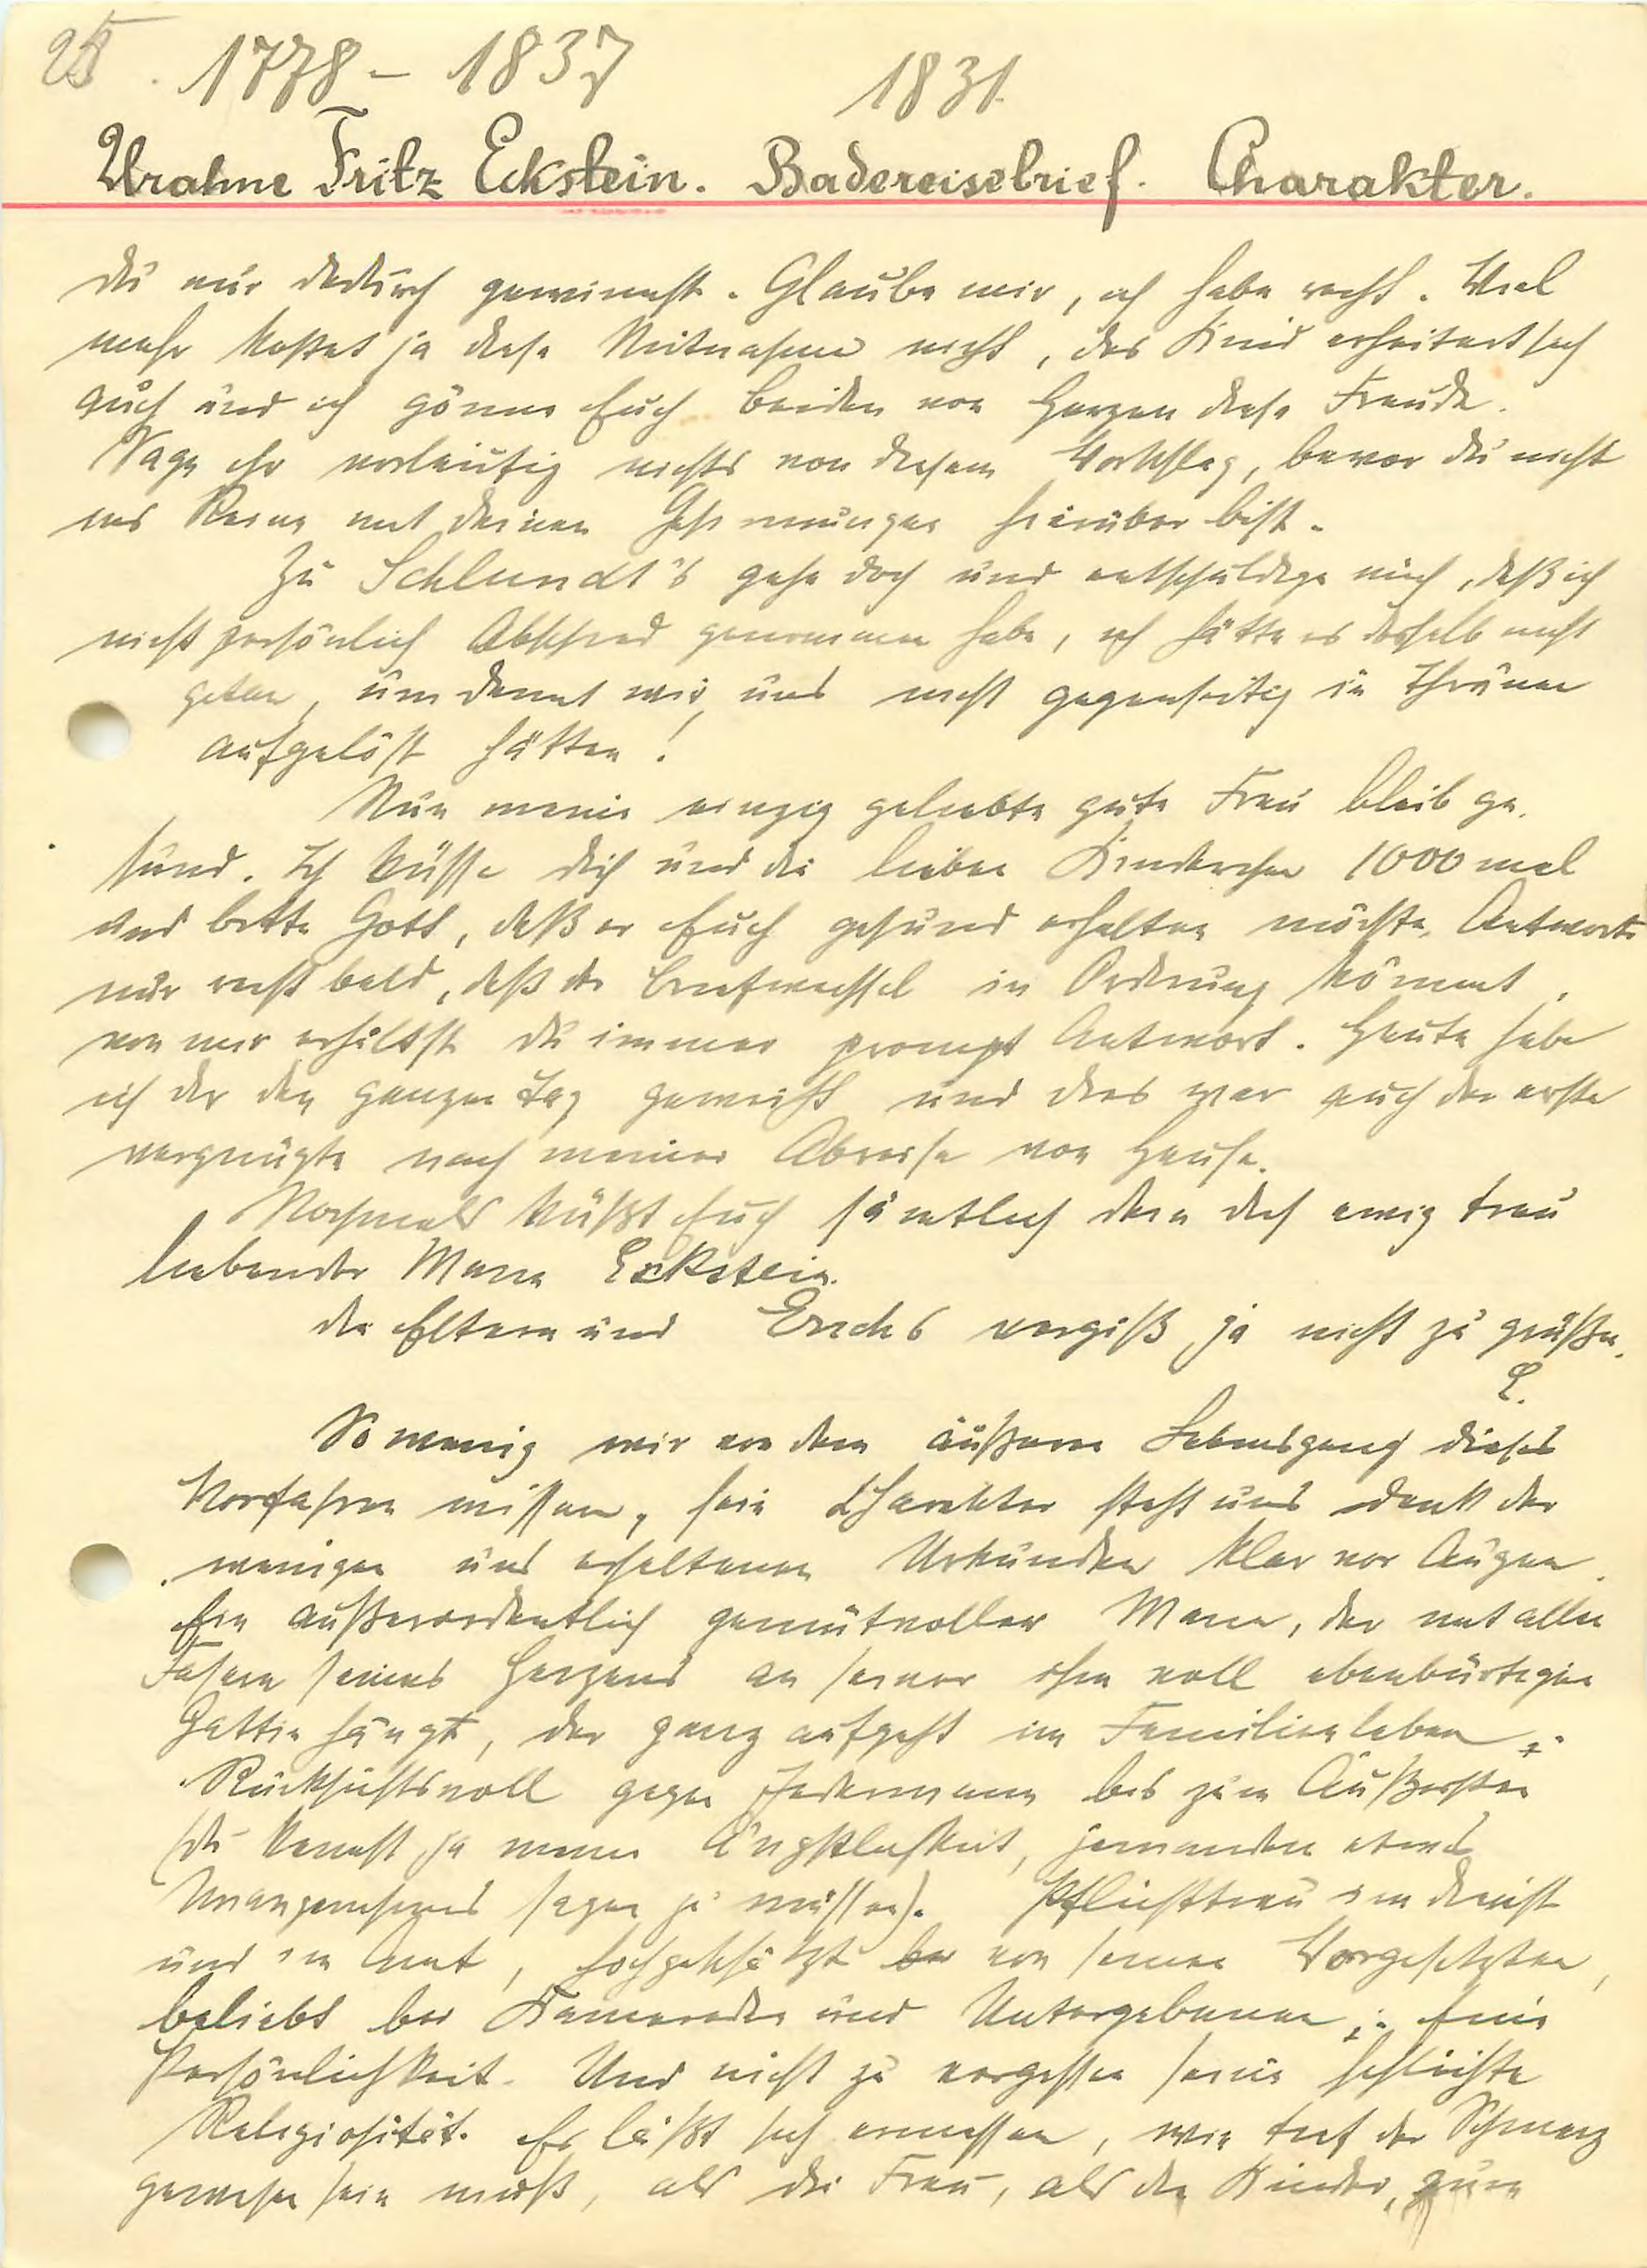 25. 1778 – 1837 1831
Urahne Fritz Eckstein. Badereisebrief. Charakter.
Du nur dadurch gewinnst. Glaube mir, ich habe recht. Viel
mehr kostet ja diese Mitnahme nicht, das Kind erheitert sich
auch und ich gönne Euch beiden von Herzen diese Freude.
Sage ihr vorläufig nichts von diesem Vorschlag, bevor du nicht
ins Reine mit deinen Gesinnungen hierüber bist.
Zu Schlundt's gehe doch und entschuldige mich, daß ich
nicht persönlich Abschied genommen habe, ich hätte es deshalb nicht
getan, um damit wir uns nicht gegenseitig in Thränen
aufgelöst hätten!
Nun meine einzig geliebte gute Frau bleib ge-
sund. Ich küsse dich und die lieben Kinderchen 1000 mal
und bitte Gott, daß er Euch gesund erhalten möchte. Antworte
nur recht bald, daß der Briefwechsel in Ordnung kömmt,
von mir erhältst du immer prompt Antwort. Heute habe
ich dir den ganzen Tag geweiht und dies war auch der erste
vergnügte nach meiner Abreise von Hause.
Nochmals küßt Euch sämtlich dein dich ewig treu
liebender Mann Eckstein.
die Eltern und Ericks vergiß ja nicht zu grüßen.
E.
So wenig wir von dem äußeren Lebensgang dieses
Vorfahren wissen, sein Charakter steht uns dank der
wenigen uns erhaltenen Urkunden klar vor Augen.
Ein außerordentlich gemütvoller Mann, der mit allen
Fasern seines Herzens an seiner ihm voll ebenbürtigen
Gattin hängt, der ganz aufgeht im Familienleben.
Rücksichtsvoll gegen Jedermann bis zum Äußersten
(du kennst ja meine Ängstlichkeit, jemanden etwas
Unangenehmes sagen zu müssen). Pflichttreu im Dienst
und im Amt, hochgeschätzt von seinen Vorgesetzten,
beliebt bei Kameraden und Untergebenen; eine
Persönlichkeit. Und nicht zu vergessen seine schlichte
Religiosität. Es läßt sich ermessen, wie tief der Schmerz
gewesen sein muß, als die Frau, als die Kinder, zum